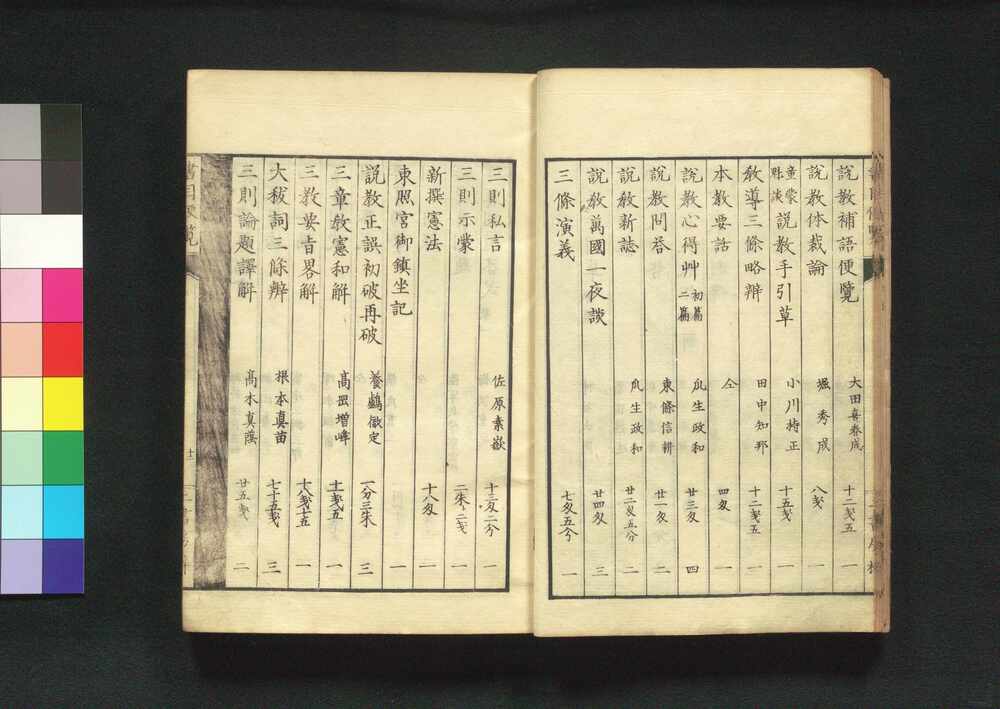 說教補語便覽 大田喜春成 十二戔五 一
說教体裁論 堀秀成 八戔 一
童蒙眛談 說教手引草 小川持正 十五戔 一
教導三條略辨 田中知邦 十二戔五 一
本教要話 仝 四匁 一
說教心得艸 初篇二篇 瓜生政和 廿三匁 四
說教問荅 東條信耕 廿一匁 二
說教新誌 瓜生政和 廿二匁五分 二
說教萬國一夜談 廿四匁 三
三條演義 七匁五分 一
三則私言 佐原素嶽 十三匁二分 一
三則示蒙 二朱ト二戔 一
新撰憲法 十八匁 一
東照宮御鎮坐記 一
說教正誤初破再破 養鸕徹定 一分三朱 三
三章教憲和解 高岡增 十一戔五 一
三教要旨畧解 十八戔七五 一
大秡詞三條辨 本真苗 七十五戔 三
三則論題譯解 高木真蔭 廿五戔 二